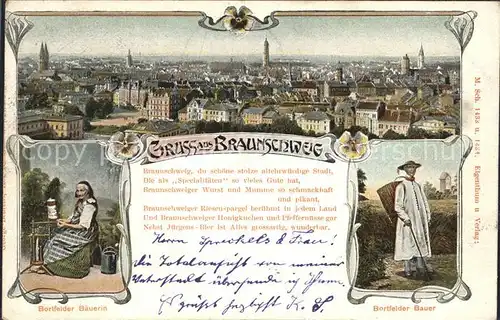 GRUSS AUS BRAUNSCHWEIG
Braunschweig, du schöne stolze altehrwürdige Stadt,
Die als „Specialitäten“ so vieles Gute hat,
Braunschweiger Wurst und Mumme so schmackhaft
und pikant,
Braunschweiger Riesenspargel berühmt in jedem Land
Und Braunschweiger Honigkuchen und Pfeffernüsse gar
Nebst Jürgens-Bier ist Alles grossartig, wunderbar.
Herrn Sprechels & Frau!
Die Totalansicht von meiner
Vaterstadt übersende ich Ihnen.
Es grüßt herzlichst K. S.
Bortfelder Bäuerin
Bortfelder Bauer
Eigenthum u. Verlag: